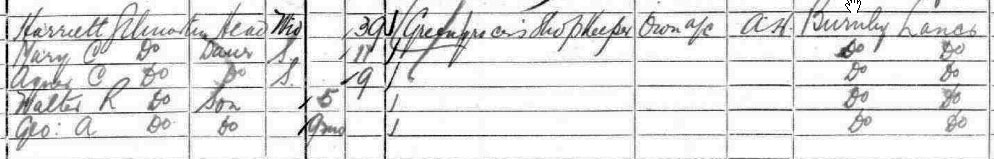 Harriett Johnston Head Wid 39 Greengrocer's Shopkeeper Own a/c A.H. Burnley Lancs
Mary C Do Daur S 11 Do Do
Agnes C Do Do S. 9 Do Do
Walter R Do Son 5 Do Do
Geo: A Do Do 9mo Do Do